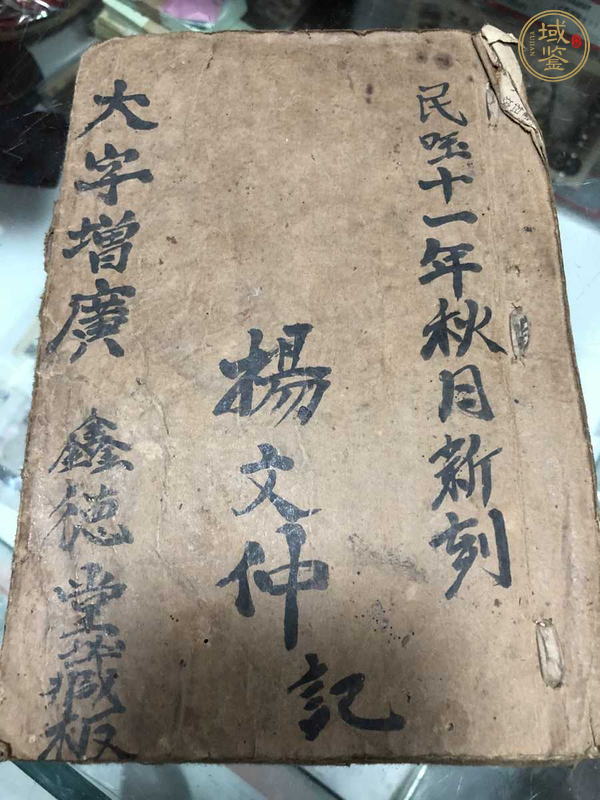 民國十一年秋月新刻
楊文仲記
大字增廣 鑫德堂藏板
域鉴
YUJIAN